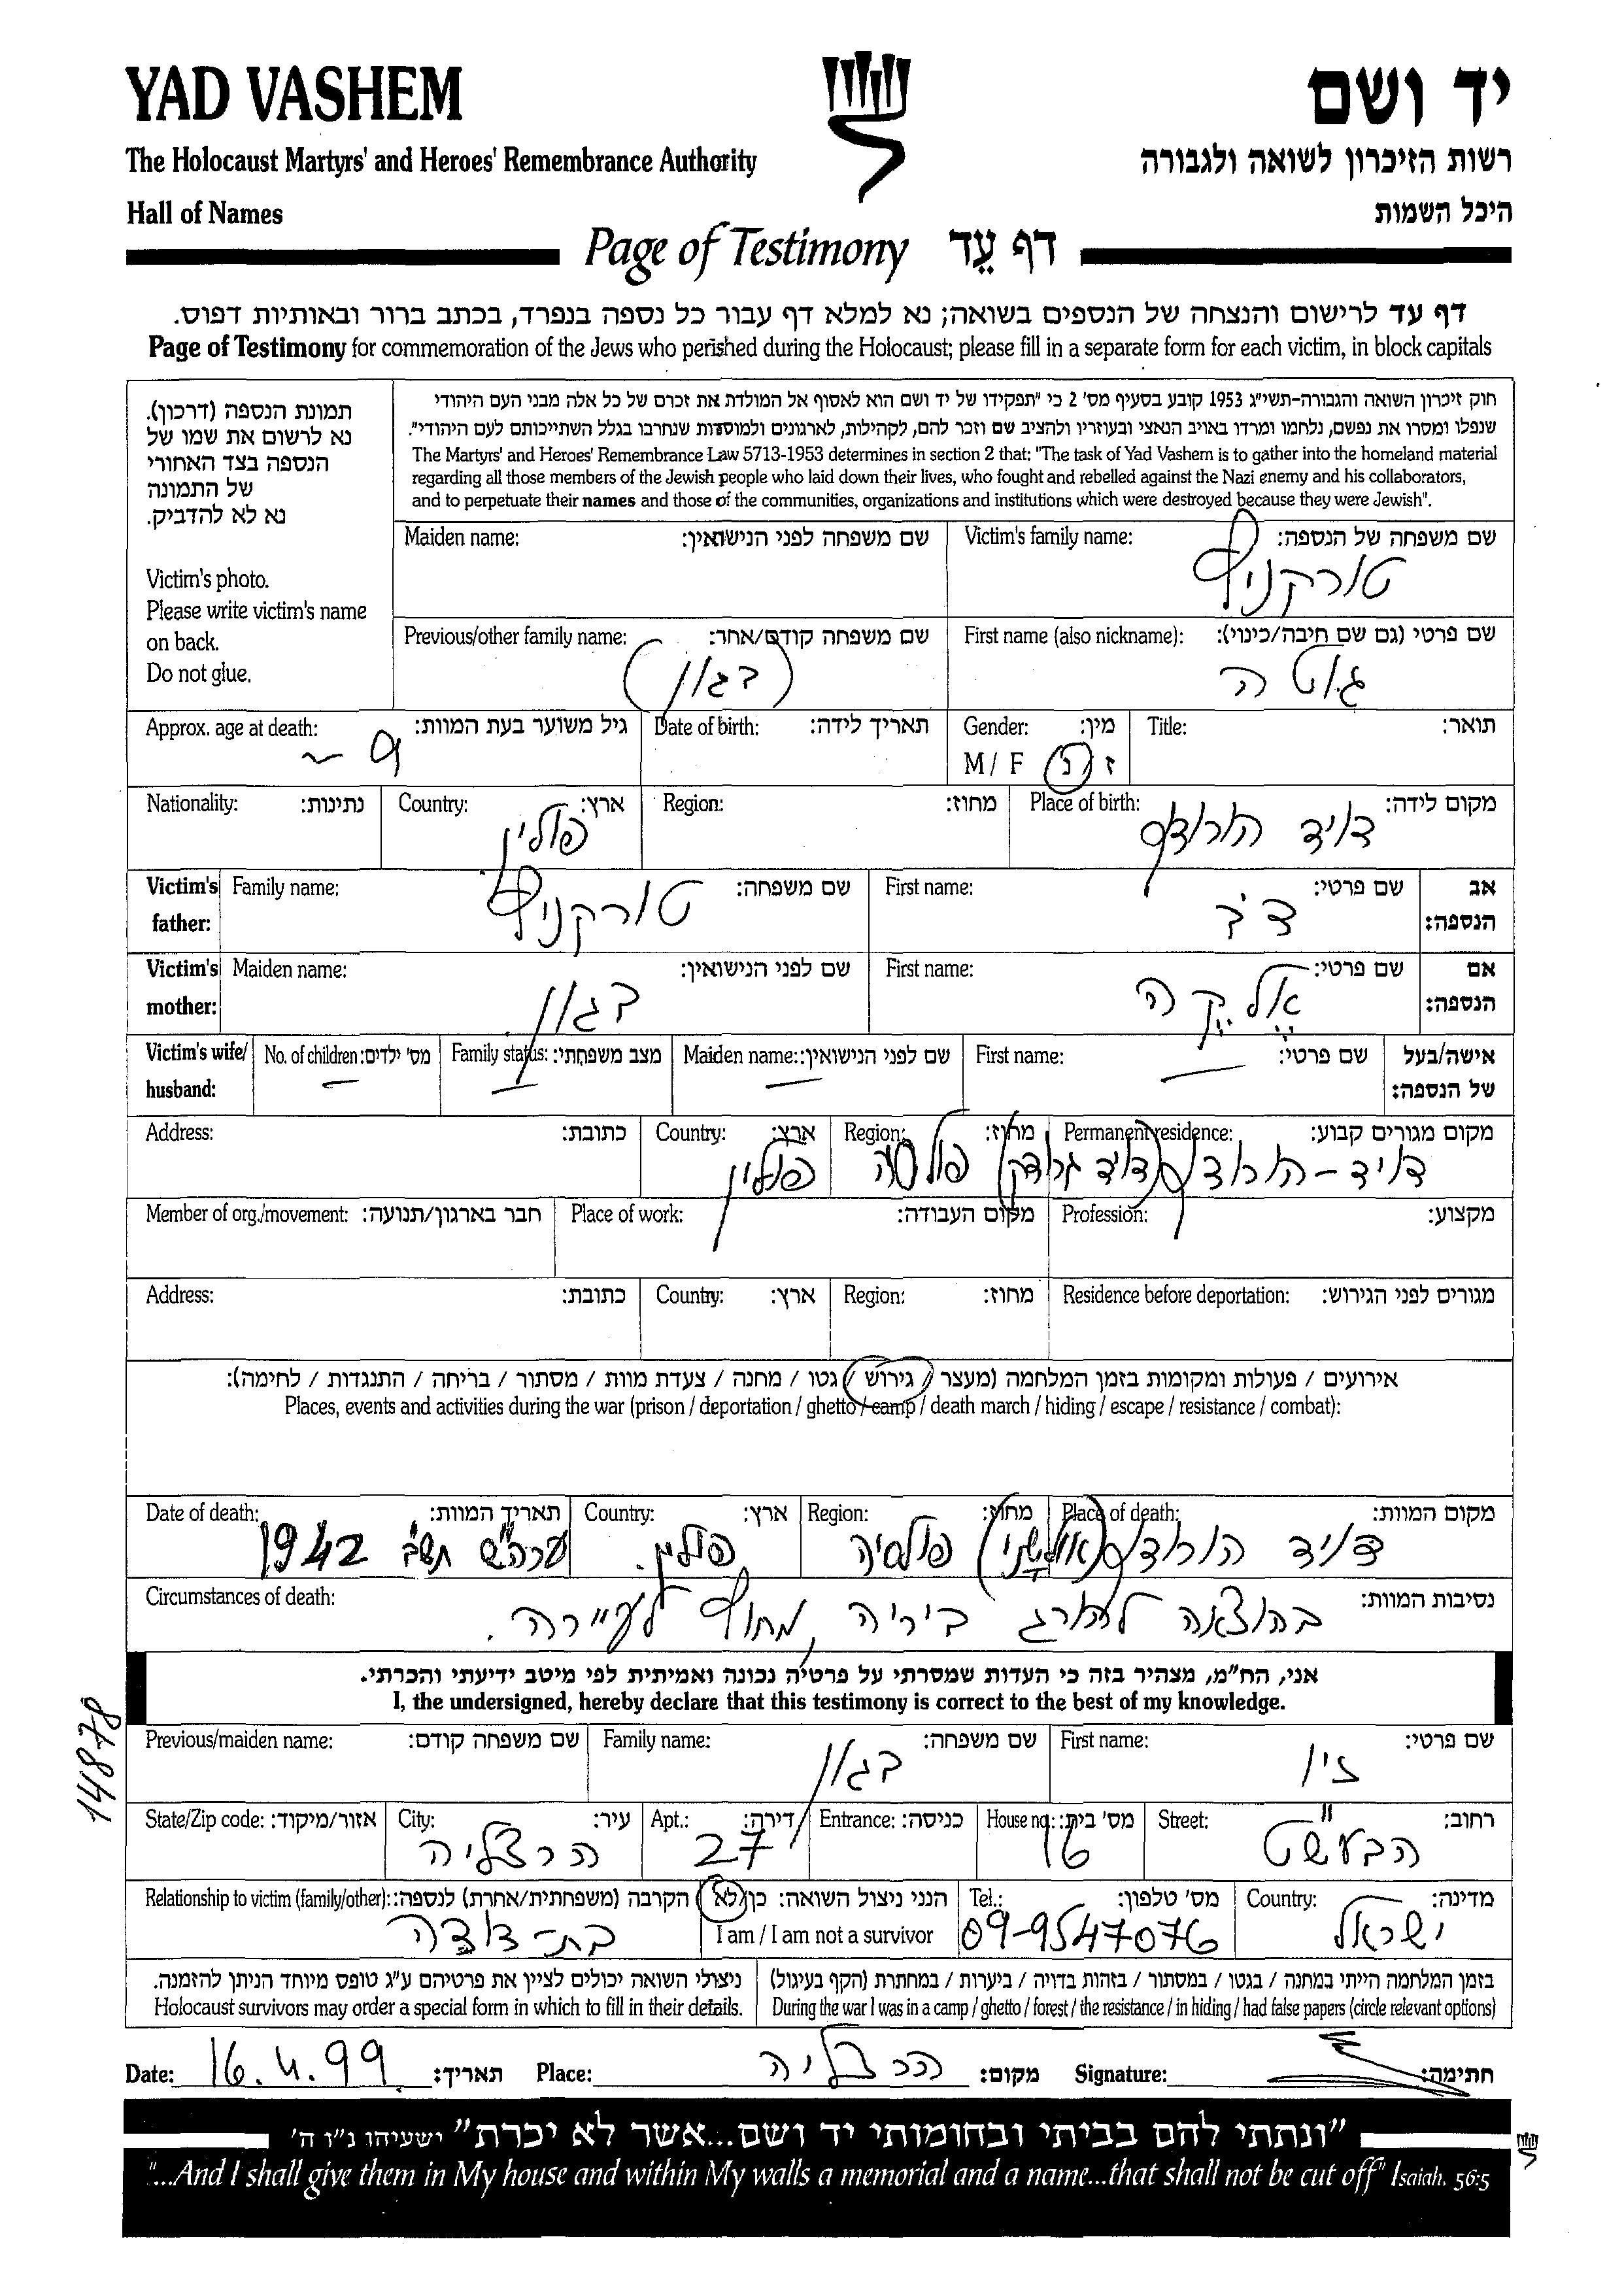 YAD VASHEM
יד ושם
The Holocaust Martyrs' and Heroes' Remembrance Authority
רשות הזיכרון לשואה ולגבורה
Hall of Names
היכל השמות
Page of Testimony דף עֵד
דף עד לרישום והנצחה של הנספים בשואה; נא למלא דף עבור כל נספה בנפרד, בכתב ברור ובאותיות דפוס.
Page of Testimony for commemoration of the Jews who perished during the Holocaust; please fill in a separate form for each victim, in block capitals
תמונת הנספה (דרכון).
נא לרשום את שמו של
הנספה בצד האחורי
של התמונה
נא לא להדביק.
Victim's photo.
Please write victim's name
on back.
Do not glue.
חוק זיכרון השואה והגבורה-תשי"ג 1953 קובע בסעיף מס' 2 כי "תפקידו של יד ושם הוא לאסוף אל המולדת את זכרם של כל אלה מבני העם היהודי
שנפלו ומסרו את נפשם, נלחמו ומרדו באויב הנאצי ובעוזריו ולהציב שם וזכר להם, לקהילות, לארגונים ולמוסדות שנחרבו בגלל השתייכותם לעם היהודי".
The Martyrs' and Heroes' Remembrance Law 5713-1953 determines in section 2 that: "The task of Yad Vashem is to gather into the homeland material
regarding all those members of the Jewish people who laid down their lives, who fought and rebelled against the Nazi enemy and his collaborators,
and to perpetuate their names and those of the communities, organizations and institutions which were destroyed because they were Jewish".
Victim's family name: שם משפחה של הנספה:
טורקניץ
Maiden name: שם משפחה לפני הנישואין:
First name (also nickname): שם פרטי (גם שם חיבה/כינוי):
גוטה
Previous/other family name: שם משפחה קודם/אחר:
(בגון)
Title: תואר:
Gender: מין:
M / F ז / נ
Date of birth: תאריך לידה:
Approx. age at death: גיל משוער בעת המוות:
~ 9
Place of birth: מקום לידה:
דויד הורודוק
Region: מחוז:
Country: ארץ:
פולין
Nationality: נתינות:
Victim's father: אב הנספה:
First name: שם פרטי:
Family name: שם משפחה:
טורקניץ
Victim's mother: אם הנספה:
First name: שם פרטי:
אלקה
Maiden name: שם לפני הנישואין:
בגון
Victim's wife/ husband: אישה/בעל של הנספה:
First name: שם פרטי: —
Maiden name: שם לפני הנישואין: —
Family status: מצב משפחתי: —
No. of children: מס' ילדים: —
Permanent residence: מקום מגורים קבוע:
דויד-הורודוק (דויד גרודק)
Region: מחוז:
פולסיה
Country: ארץ:
פולין
Address: כתובת:
Profession: מקצוע:
Place of work: מקום העבודה:
Member of org./movement: חבר בארגון/תנועה:
Residence before deportation: מגורים לפני הגירוש:
Region: מחוז:
Country: ארץ:
Address: כתובת:
אירועים / פעולות ומקומות בזמן המלחמה (מעצר / גירוש / גטו / מחנה / צעדת מוות / מסתור / בריחה / התנגדות / לחימה):
Places, events and activities during the war (prison / deportation / ghetto / camp / death march / hiding / escape / resistance / combat):
Place of death: מקום המוות:
דויד הורודוק
Region: מחוז:
פולסיה
Country: ארץ:
פולין.
Date of death: תאריך המוות:
ערה"ש תש"ב 1942
Circumstances of death: נסיבות המוות:
בהוצאה להורג ביריה, מחוץ לעיירה.
אני, הח"מ, מצהיר בזה כי העדות שמסרתי על פרטיה נכונה ואמיתית לפי מיטב ידיעתי והכרתי.
I, the undersigned, hereby declare that this testimony is correct to the best of my knowledge.
14878
First name: שם פרטי:
זיו
Family name: שם משפחה:
בגון
Previous/maiden name: שם משפחה קודם:
Street: רחוב:
הבעש"ט
House no.: מס' בית:
16
Entrance: כניסה:
Apt.: דירה:
27
City: עיר:
הרצליה
State/Zip code: אזור/מיקוד:
Country: מדינה:
ישראל
Tel.: מס' טלפון:
09-9547076
הנני ניצול השואה: כן/לא
I am / I am not a survivor
Relationship to victim (family/other): הקרבה (משפחתית/אחרת) לנספה:
בת-דודה
בזמן המלחמה הייתי במחנה / בגטו / במסתור / בזהות בדויה / ביערות / במחתרת (הקף בעיגול)
During the war I was in a camp / ghetto / forest / the resistance / in hiding / had false papers (circle relevant options)
ניצולי השואה יכולים לציין את פרטיהם ע"ג טופס מיוחד הניתן להזמנה.
Holocaust survivors may order a special form in which to fill in their details.
Date: 16.4.99 תאריך: Place: הרצליה מקום: Signature: חתימה:
"ונתתי להם בביתי ובחומותי יד ושם...אשר לא יכרת" ישעיהו נ"ו ה'
"...And I shall give them in My house and within My walls a memorial and a name...that shall not be cut off" Isaiah, 56:5